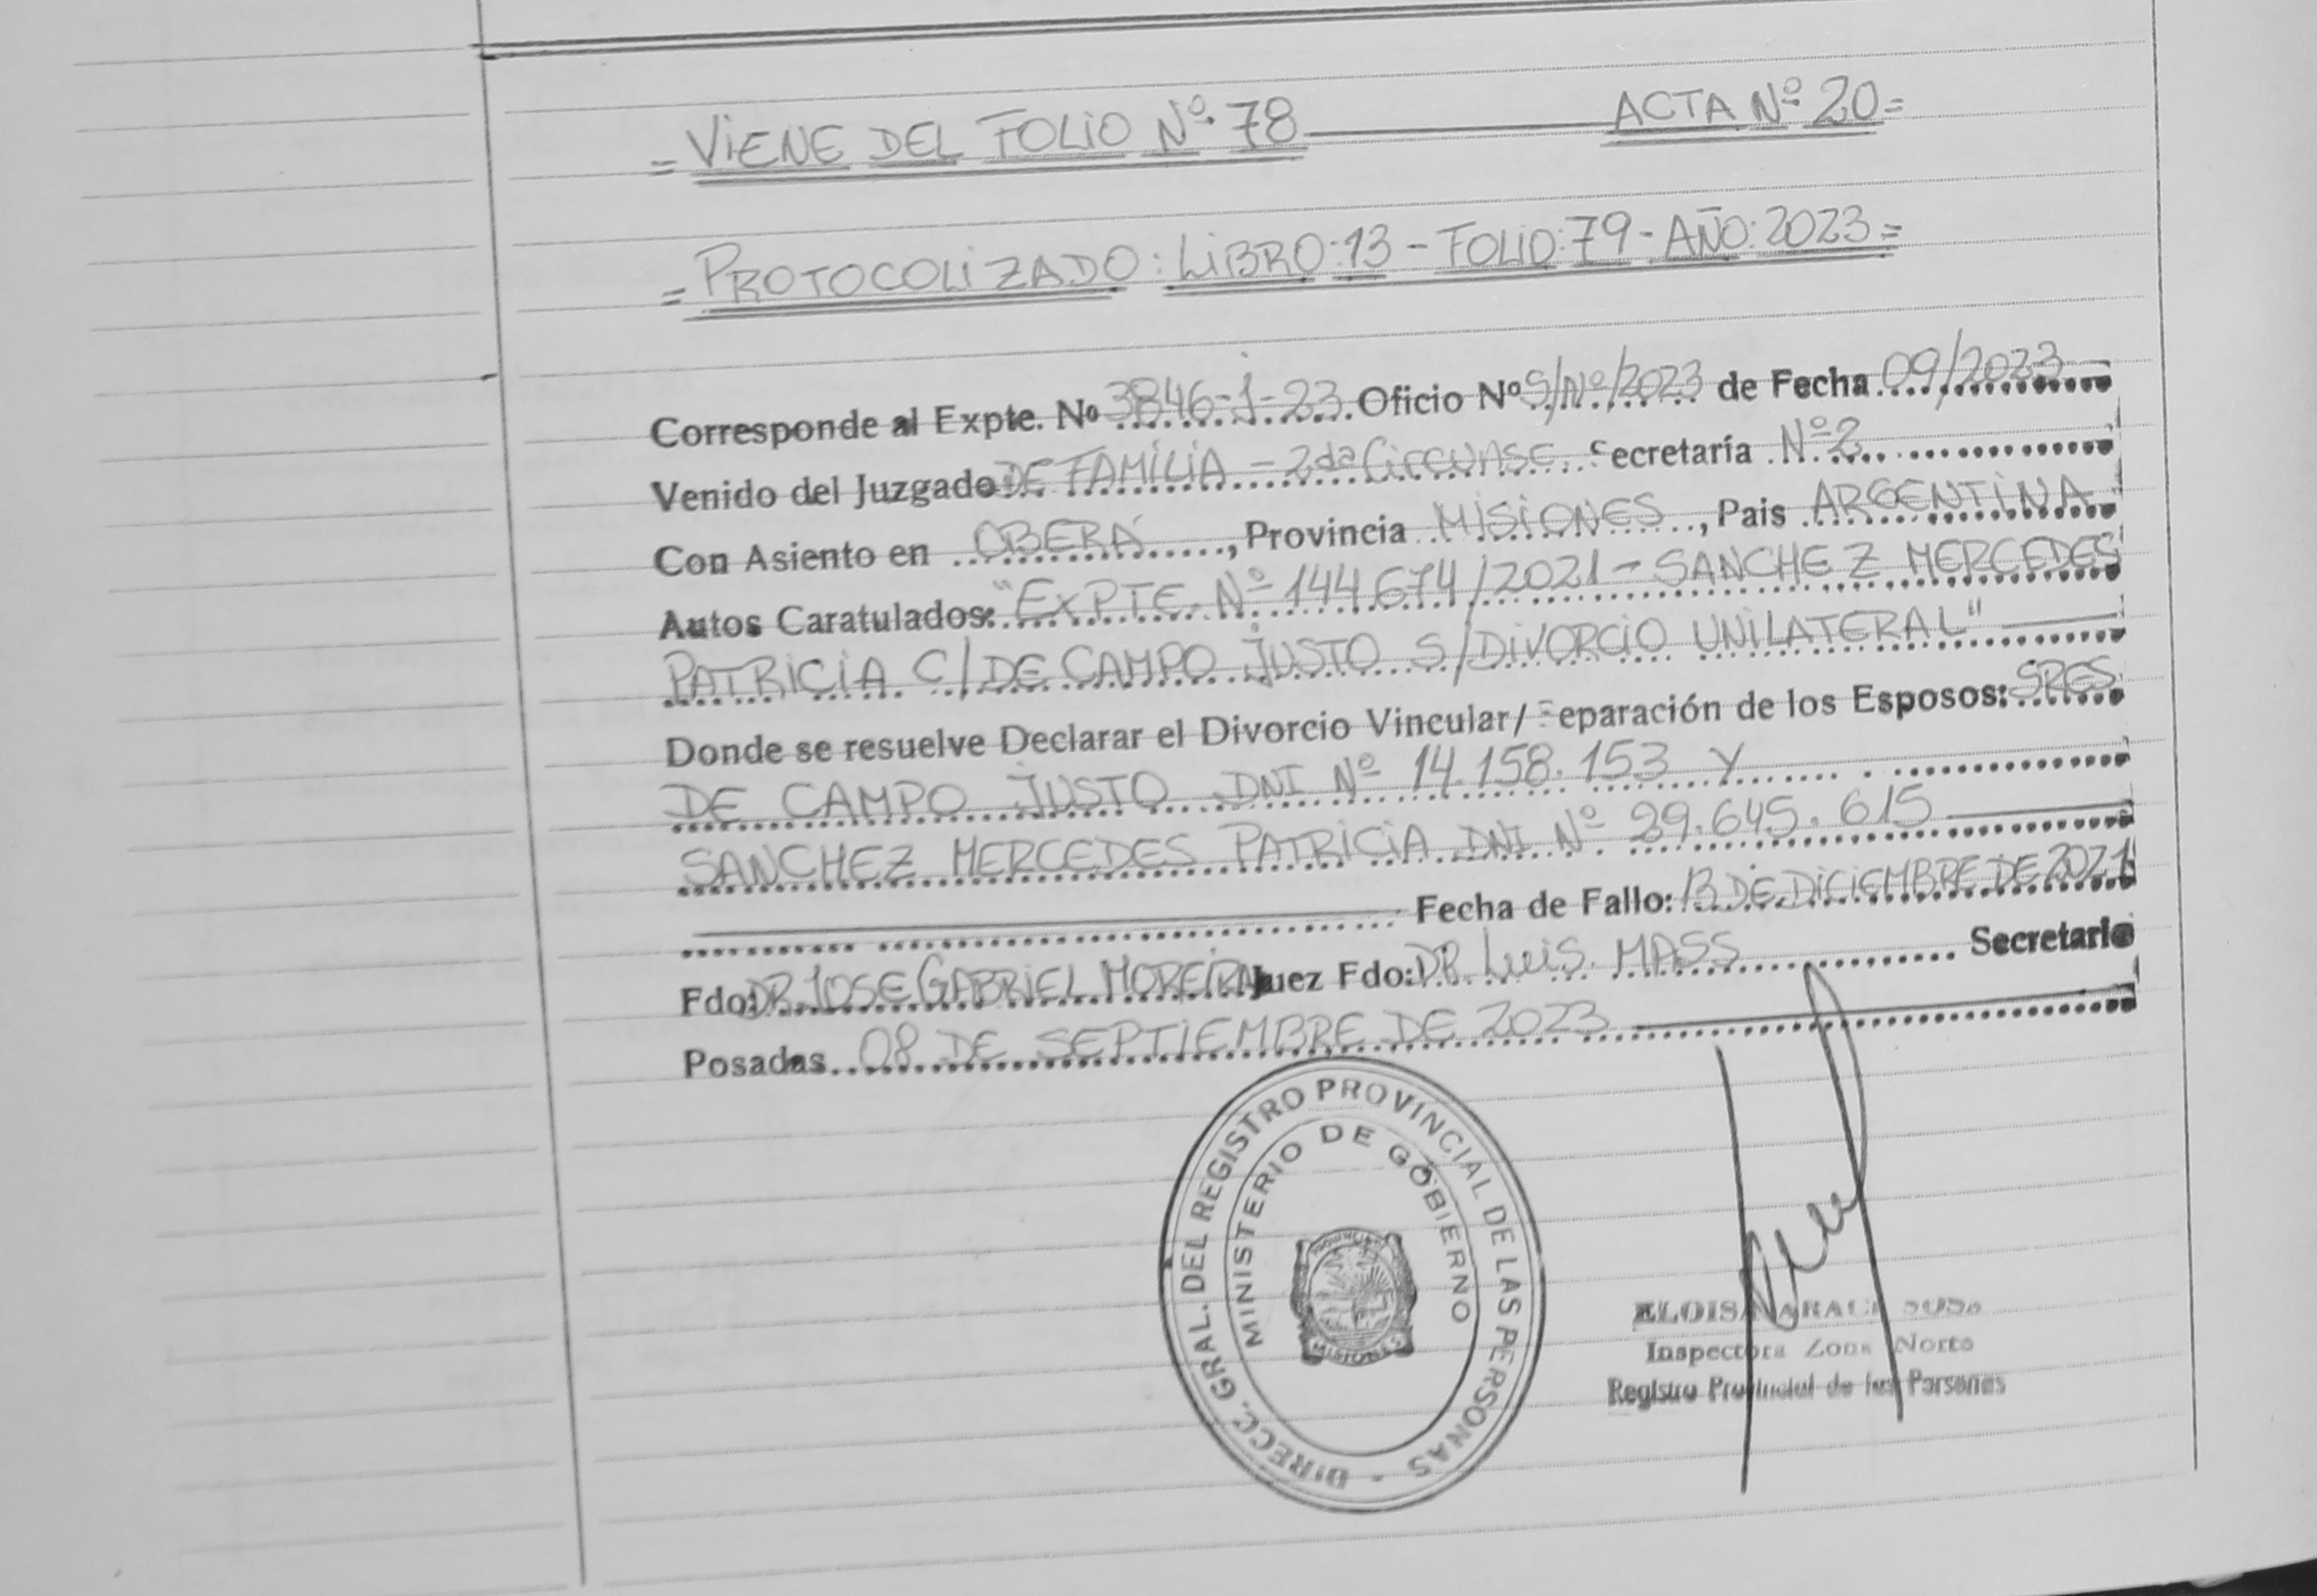 = VIENE DEL FOLIO Nº 78 ACTA Nº 20=
= PROTOCOLIZADO: LIBRO: 13 - FOLIO: 79 - AÑO: 2023 =
Corresponde al Expte. Nº 3846-1-23 Oficio Nº S/Nº/2023 de Fecha 09/2023
Venido del Juzgado DE FAMILIA - 2da Circunsc. Secretaría Nº 2
Con Asiento en OBERÁ, Provincia MISIONES, Pais ARGENTINA
Autos Caratulados: "EXPTE. Nº 144674/2021 - SANCHEZ MERCEDES
PATRICIA C/ DE CAMPO JUSTO S/ DIVORCIO UNILATERAL"
Donde se resuelve Declarar el Divorcio Vincular/ Separación de los Esposos: SRES
DE CAMPO JUSTO DNI Nº 14.158.153 Y
SANCHEZ MERCEDES PATRICIA DNI Nº 29.645.615
Fecha de Fallo: 13 DE DICIEMBRE DE 2021
Fdo: DR. JOSE GABRIEL MOREIRA Juez Fdo: DR. LUIS. MASS Secretario
Posadas 08 DE SEPTIEMBRE DE 2023
DIRECC. GRAL. DEL REGISTRO PROVINCIAL DE LAS PERSONAS -
MINISTERIO DE GOBIERNO
PROVINCIA
MISIONES
ELOISA ARACI SOSA
Inspectora Zona Norte
Registro Provincial de las Personas